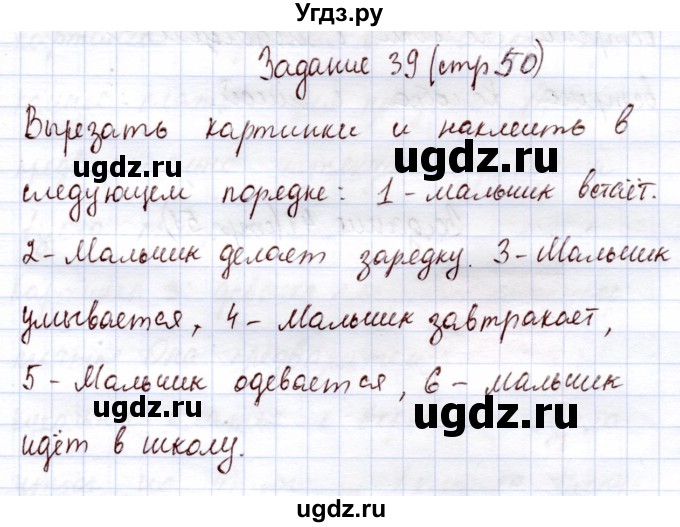 Угдз.ру
Задание 39 (стр 50)
Вырезать картинки и наклеить в
ugdz.ru ugdz.ru
следующем порядке: 1 - мальчик встаёт.
2 - Мальчик делает зарядку. 3 - Мальчик
ugdz.ru
умывается, 4 - Мальчик завтракает,
5 - Мальчик одевается, 6 - мальчик
ugdz.ru ugdz.ru
идёт в школу.
ugdz.ru